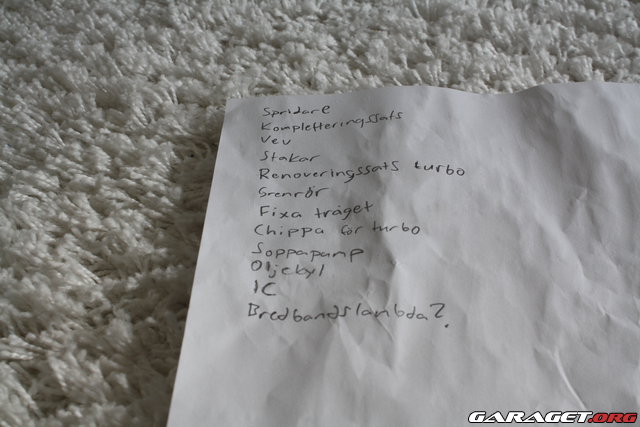 Spridare
Kompletteringssats
Vev
Stakar
Renoveringssats turbo
Grenrör
Fixa tråget
Chippa för turbo
Soppapump
Oljekyl
IC
Bredbandslambda?
GARAGET.ORG